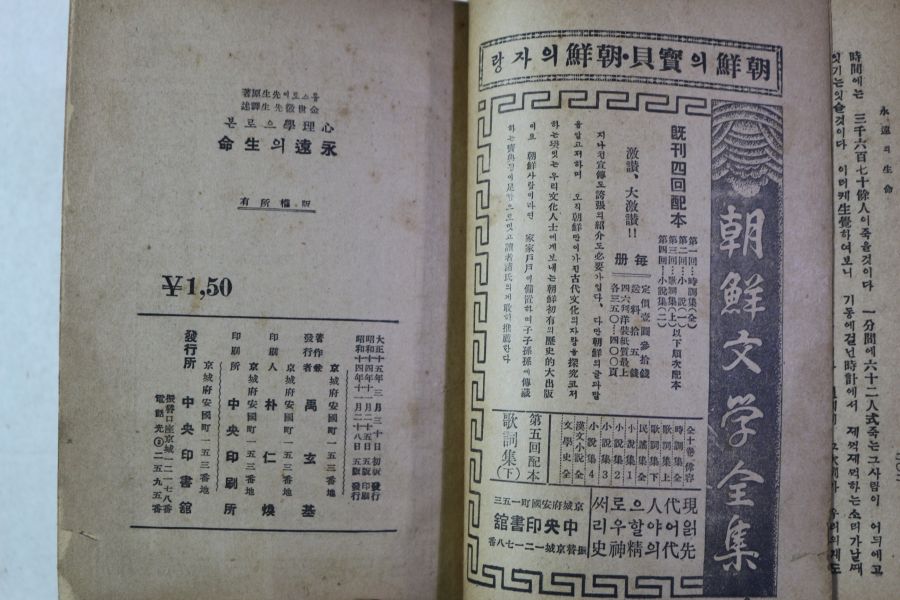 金世徵先生譯述
心理學으로본
永遠의生命
版權所有
¥1,50
大正十五年三月三十日初版發行
昭和十四年十一月二十五日五版印刷
昭和十四年十一月二十八日五版發行
京城府安國町一五三番地
著作兼
發行者 禹玄基
京城府安國町一五三番地
印刷人 朴仁煥
京城府安國町一五三番地
印刷所 中央印刷所
京城府安國町一五三番地
發行所 中央印書館
振替口座京城一二一七八番
電話光③二五九五番
朝鮮의寶貝·朝鮮의자랑
朝鮮文学全集
旣刊四回配本
第一回…時調集(全)
第二回…小說(一)
第三回…歌詞集(上)
第四回…小說集(二)
以下順次配本
激讃、大激讃!!
每册
定價壹圓參拾錢
送料拾五錢
四六判洋裝紙質最上
各三五〇—四〇〇頁
지나친宣傳도誇張의紹介도必要가업다、다만朝鮮의글과말
을알고저하며 오직朝鮮만이가진古代文化의자랑을探究코저
하는뜻잇는우리文化人士에게보내는朝鮮初有의歷史的大出版
이요 朝鮮사람이라면 家家戶戶에備置하여子子孫孫에傳하
第五回配本
歌詞集(下)
時調集 全
歌詞集 上
歌詞集 下
民謠集 全
小說集 1
小說集 2
小說集 3
小說集 4
漢文小說 全
文學史 全
現代人으로써
읽어야할우리
先代의精神史
京城府安國町一五三
中央印書館
振替京城一二一七八番
永遠의生命
時間에는 三千六百七十餘人이죽을것이다 一分間에六十二人式죽는그사람이 어듸에고
잇기는잇슬것이다 이러케生覺하여보니 기동에걸닌時計에서 제격제격하는소리가날때